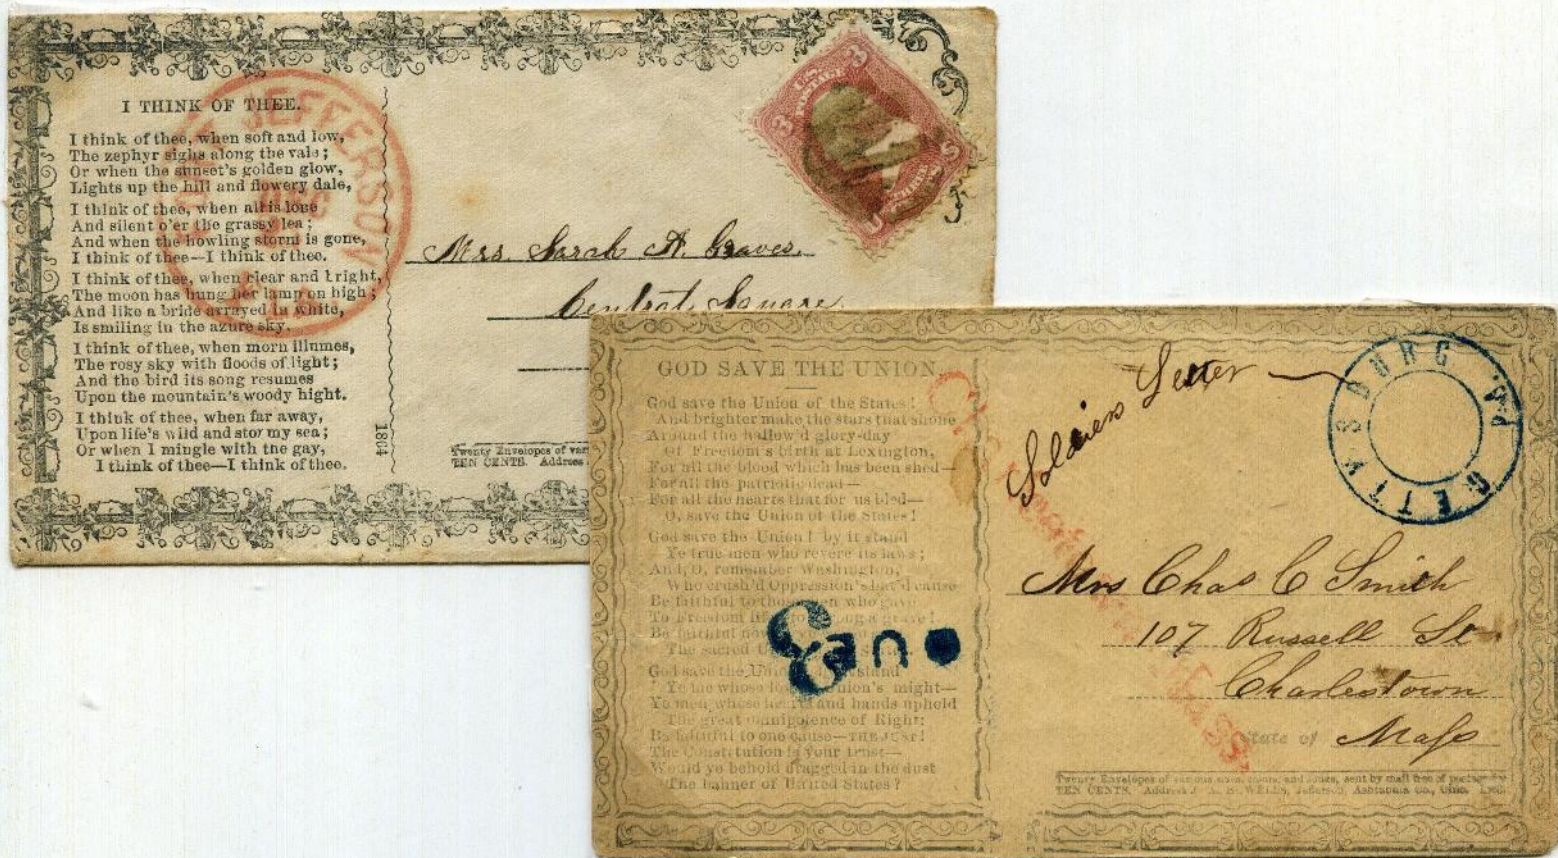 I THINK OF THEE.
I think of thee, when soft and low,
The zephyr sighs along the vale;
Or when the sunset's golden glow,
Lights up the hill and flowery dale,
I think of thee, when all is lone
And silent o'er the grassy lea;
And when the howling storm is gone,
I think of thee—I think of thee.
I think of thee, when clear and bright,
The moon has hung her lamp on high;
And like a bride arrayed in white,
Is smiling in the azure sky.
I think of thee, when morn illumes,
The rosy sky with floods of light;
And the bird its song resumes
Upon the mountain's woody hight.
I think of thee, when far away,
Upon life's wild and stormy sea;
Or when I mingle with the gay,
I think of thee—I think of thee.
1864
JEFFERSON
3 3
U S
Mrs. Sarah A. Graves.
Central Square
Twenty Envelopes of
TEN CENTS. Address
GOD SAVE THE UNION.
God save the Union of the States!
And brighter make the stars that shone
Around the hallow'd glory-day
Of Freedom's birth at Lexington,
For all the blood which has been shed—
For all the patriotic dead—
For all the hearts that for us bled—
O, save the Union of the States!
God save the Union! by it stand
Ye true men who revere its laws;
And, O, remember Washington,
Who crush'd Oppression's cause
Be faithful to who gave
To Freedom a grave!
Be faithful
The sacred
God save the stand
Ye whose Union's might—
Ye men, whose hearts and hands uphold
The great omnipotence of Right:
Be faithful to one cause—THE JUST!
The Constitution is your trust—
Would ye behold dragged in the dust
The banner of United States?
Due 3
Soldiers Letter
GETTYSBURG PA.
Mrs Chas C Smith
107 Russell St
Charlestown
State of Mass
Mass.
Twenty Envelopes of various sizes, and sent by mail free of postage
TEN CENTS. Address WELLS, Jefferson, Ashtabula Co., Ohio.